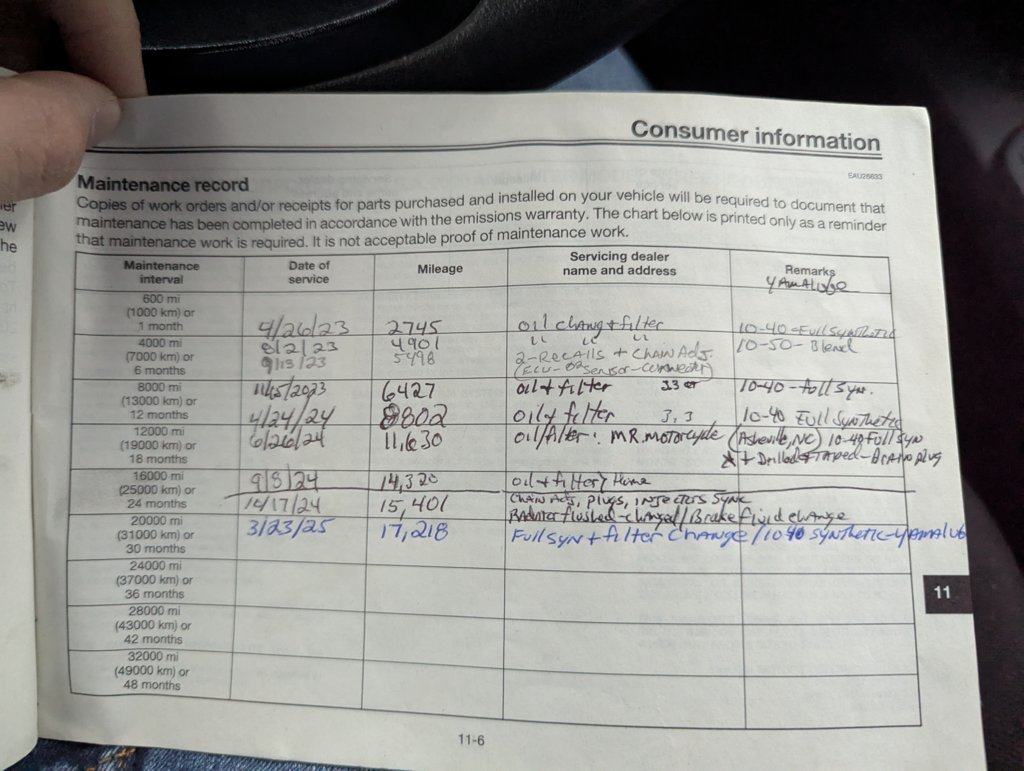 Consumer information
EAU26633
Maintenance record
Copies of work orders and/or receipts for parts purchased and installed on your vehicle will be required to document that
maintenance has been completed in accordance with the emissions warranty. The chart below is printed only as a reminder
that maintenance work is required. It is not acceptable proof of maintenance work.
Maintenance interval Date of service Mileage Servicing dealer name and address Remarks
YAMALUBE
600 mi
(1000 km) or
1 month 4/26/23 2745 oil chang + filter 10-40-Full Synthetic
4000 mi 8/2/23 4901 " " " 10-50-Blend
(7000 km) or 9/13/23 5498 2-Recalls + Chain Adj.
6 months (ECU-O2 Sensor-Connector)
8000 mi 11/15/2023 6427 oil + filter 3.3 10-40-full Syn.
(13000 km) or
12 months 4/24/24 8802 oil + filter 3,3 10-40 Full Synthetic
12000 mi 6/26/24 11,630 oil/filter: MR. Motorcycle (Asheville, NC) 10-40 Full Syn
(19000 km) or
18 months + Drilled + TAPED-Brain plug
16000 mi 9/8/24 14,320 oil + filter / Home
(25000 km) or
24 months 14/17/24 15,401 Chain Adj, plugs, injectors Sync
Radiator flushed-changed / Brake fluid change
20000 mi 3/23/25 17,218 Full Syn + filter Change / 10 40 Synthetic-YAMALUB
(31000 km) or
30 months
24000 mi
(37000 km) or
36 months
28000 mi
(43000 km) or
42 months
32000 mi
(49000 km) or
48 months
11
11-6